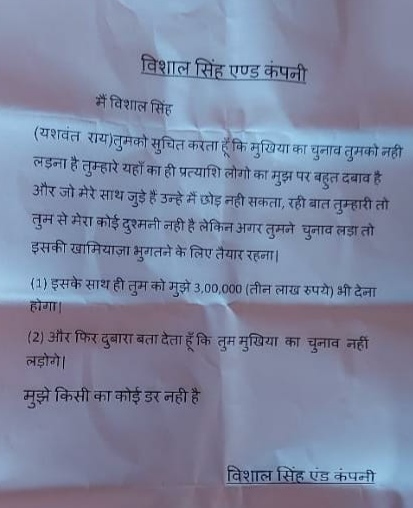 विशाल सिंह एण्ड कंपनी
मैं विशाल सिंह
(यशवंत राय)तुमको सुचित करता हूँ कि मुखिया का चुनाव तुमको नही
लड़ना है तुम्हारे यहाँ का ही प्रत्याशि लोगो का मुझ पर बहुत दबाव है
और जो मेरे साथ जुड़े हैं उन्हे मैं छोड़ नही सकता, रही बात तुम्हारी तो
तुम से मेरा कोई दुश्मनी नही है लेकिन अगर तुमने चुनाव लडा तो
इसकी खामियाज़ा भुगतने के लिए तैयार रहना|
(1) इसके साथ ही तुम को मुझे 3,00,000 (तीन लाख रुपये) भी देना
होगा|
(2) और फिर दुबारा बता देता हूँ कि तुम मुखिया का चुनाव नहीं
लड़ोगे|
मुझे किसी का कोई डर नही है
विशाल सिंह एंड कंपनी